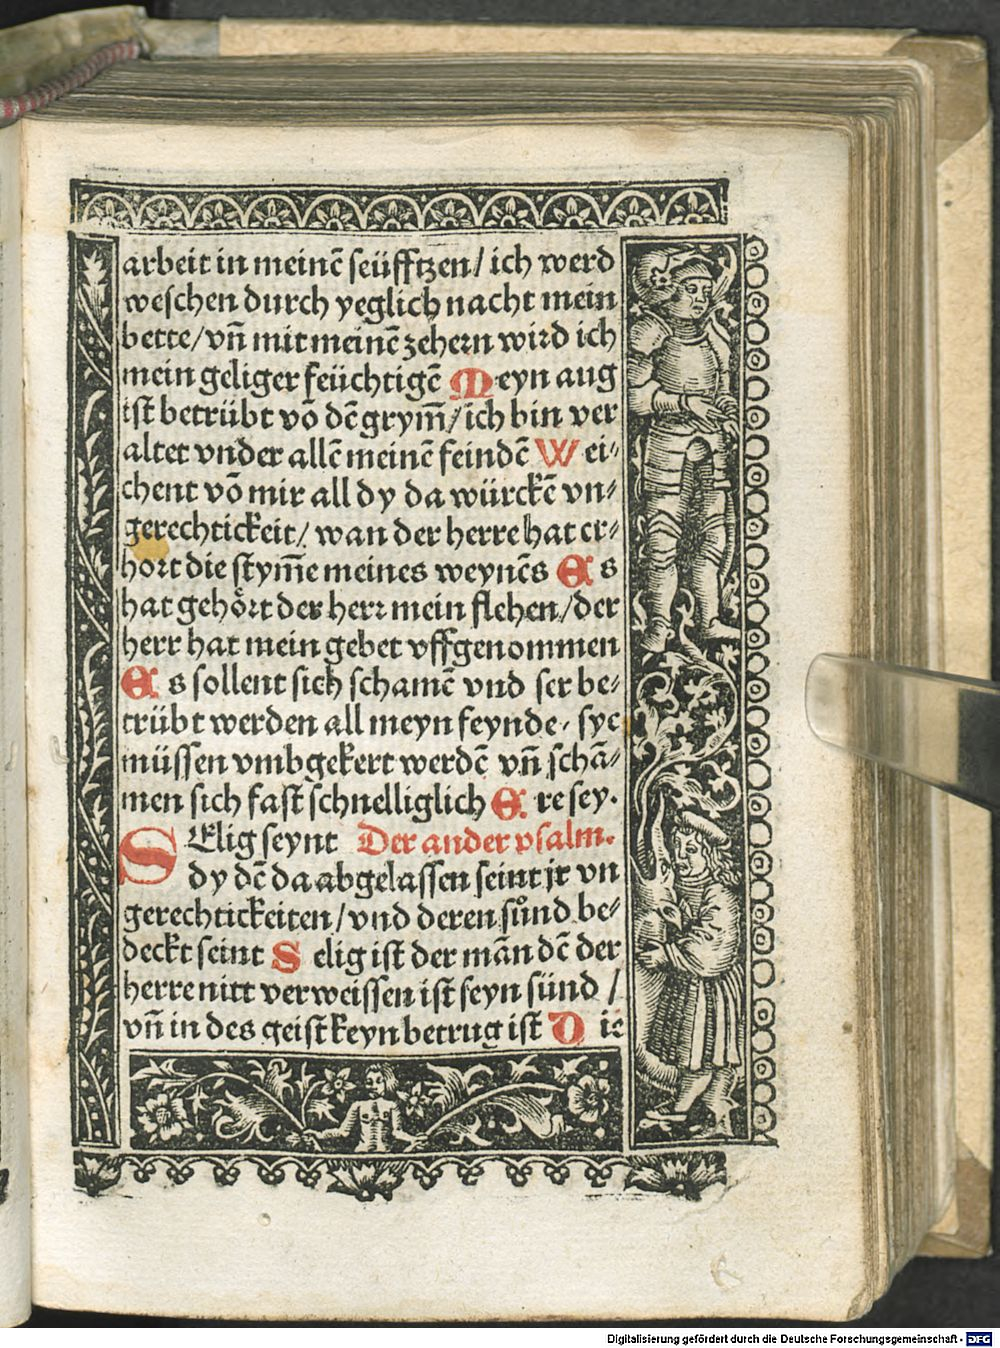 arbeit in meinē seüfftzen/ ich werd
weschen durch yeglich nacht mein
bette/ vn̄ mit meinē zehern wird ich
mein geliger feüchtigē Meyn aug
ist betrübt vō dē grym̄/ ich bin ver
altet vnder allē meinē feindē Wei⸗
chent vō mir all dy da würckē vn⸗
gerechtickeit/ wan der herre hat er⸗
hort die stym̄e meines weynēs Es
hat gehört der herr mein flehen/ der
herr hat mein gebet vffgenommen
Es sollent sich schamē vnd ser be⸗
trübt werden all meyn feynde. sye
müssen vmbgekert werdē vn̄ schā⸗
men sich fast schnelliglich Ere sey.
SElig seynt Der ander psalm.
dy dē da abgelassen seint jr vn
gerechtickeiten/ vnd deren sůnd be⸗
deckt seint Selig ist der mān dē der
herre nitt verweissen ist seyn sünd /
vn̄ in des geist keyn betrug ist Die
Digitalisierung gefördert durch die Deutsche Forschungsgemeinschaft - DFG